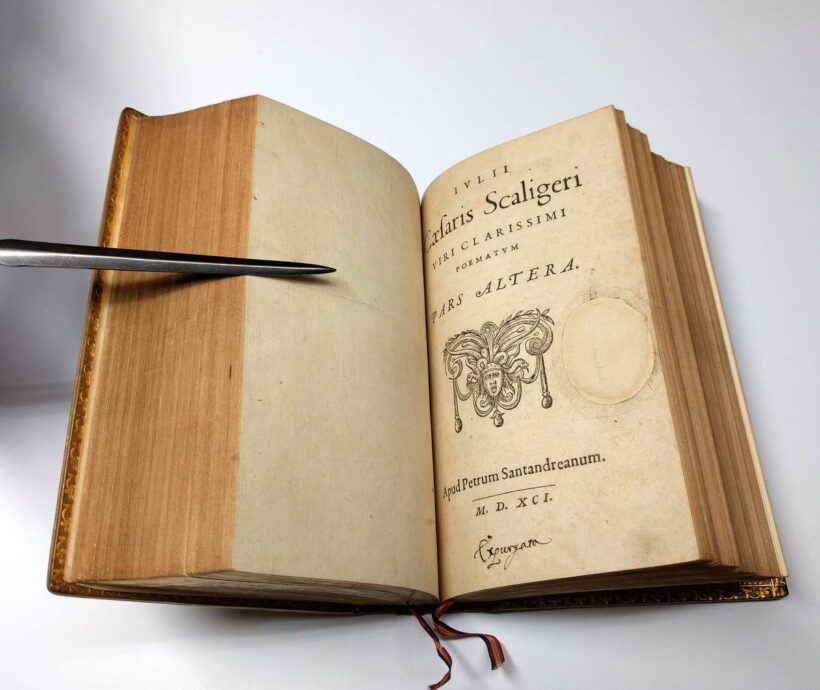 IVLII
Cæſaris Scaligeri
VIRI CLARISSIMI
POEMATVM
PARS ALTERA.
Apud Petrum Santandreanum.
M. D. XCI.
Expurgata